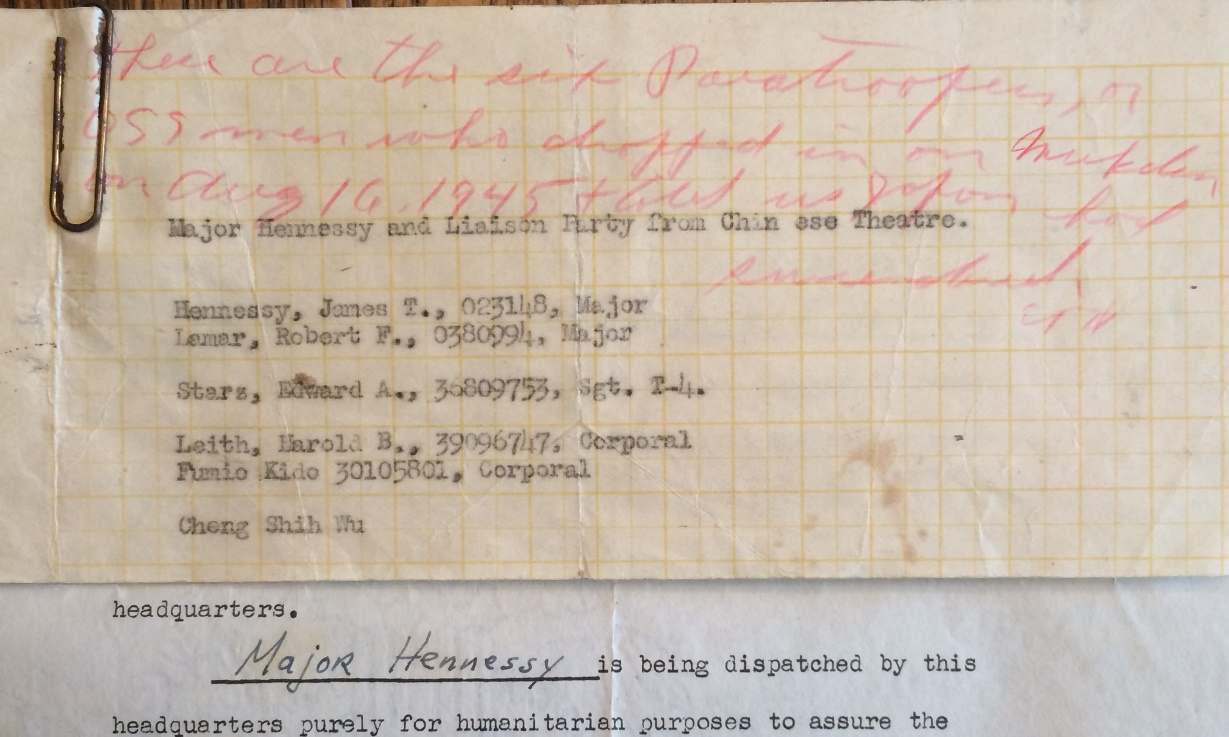 these are the six Paratroopers, or
OSS men who dropped in on Mukden
on Aug 16, 1945 & told us Japan had
surrendered.
Major Hennessy and Liaison Party from Chin ese Theatre.
Hennessy, James T., 023148, Major
Lamar, Robert F., 0380994, Major
Starz, Edward A., 36809753, Sgt. T-4.
Leith, Harold B., 39096747, Corporal
Fumio Kido 30105801, Corporal
Cheng Shih Wu
headquarters.
Major Hennessy is being dispatched by this
headquarters purely for humanitarian purposes to assure the